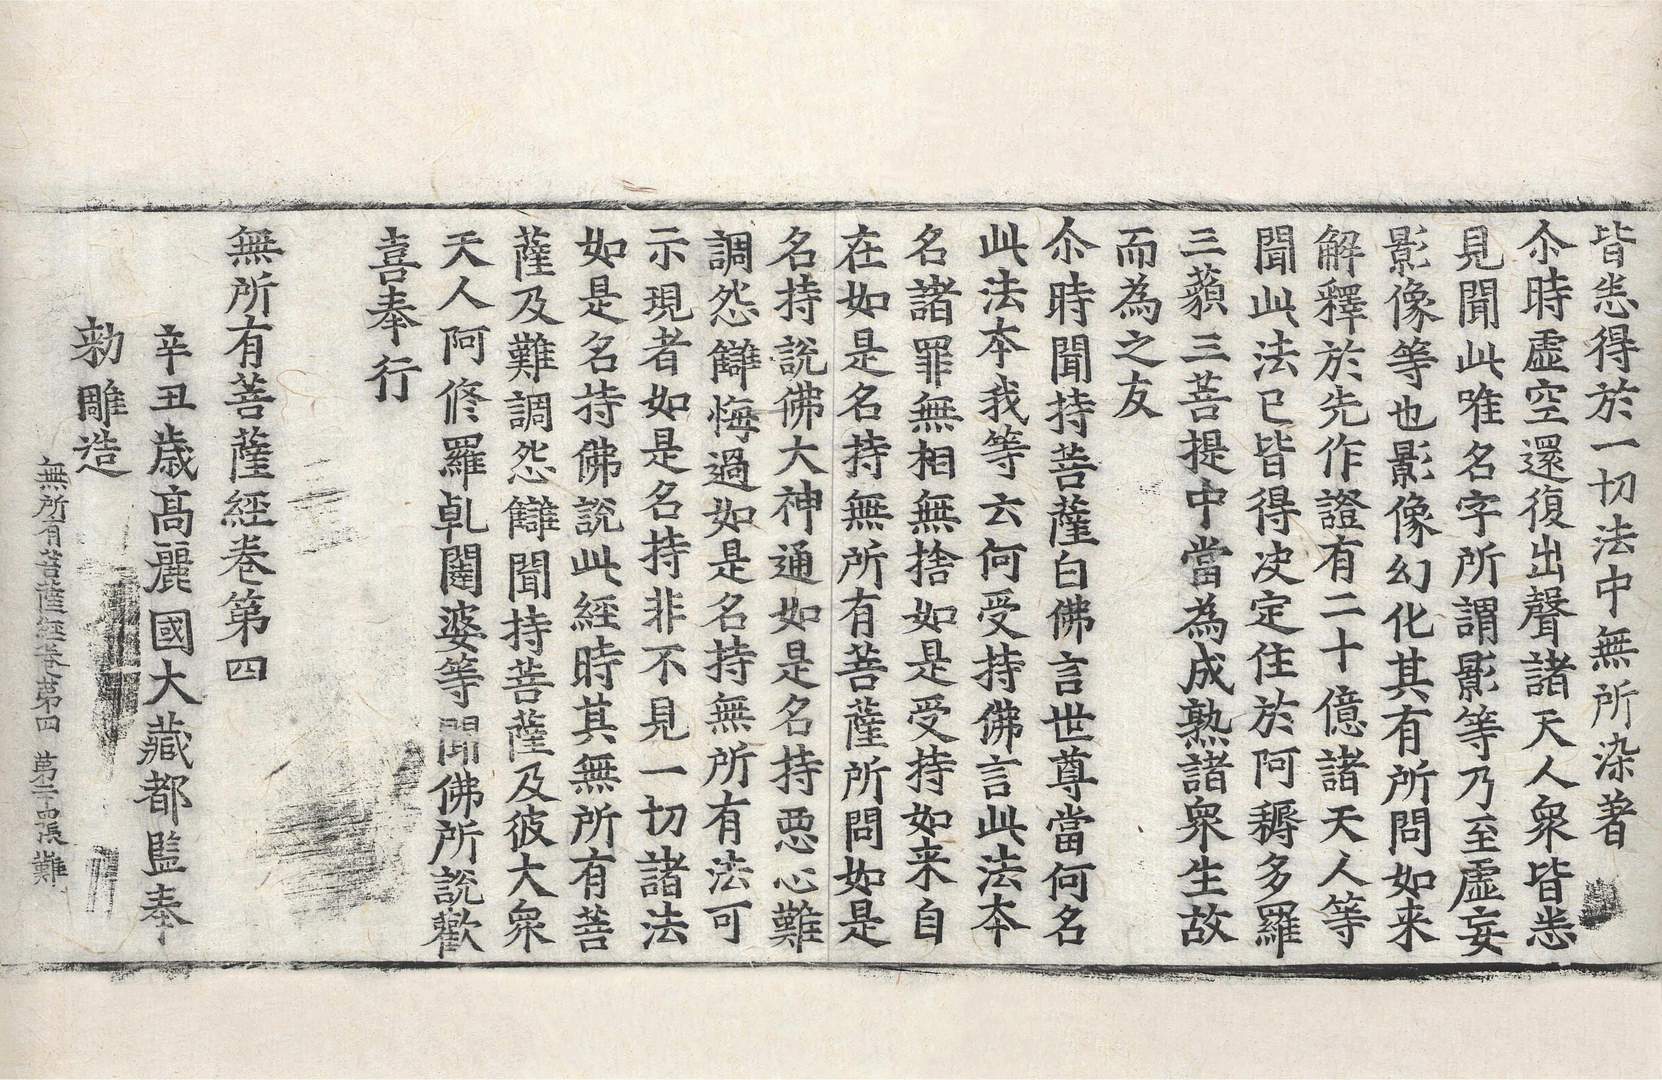 皆悉得於一切法中無所染著
尒時虛空還復出聲諸天人衆皆悉
見聞此唯名字所謂影等乃至虛妄
影像等也影像幻化其有所問如来
解釋於先作證有二十億諸天人等
聞此法已皆得决定住於阿耨多羅
三藐三菩提中當為成熟諸衆生故
而為之友
尒時聞持菩薩白佛言世尊當何名
此法夲我等云何受持佛言此法夲
名諸罪無相無捨如是受持如来自
在如是名持無所有菩薩所問如是
名持說佛大神通如是名持惡心難
調怨讎悔過如是名持無所有法可
示現者如是名持非不見一切諸法
如是名持佛說此經時其無所有菩
薩及難調怨讎聞持菩薩及彼大衆
天人阿修羅乹闥婆等聞佛所說歡
喜奉行
無所有菩薩經卷第四
辛丑歲高麗國大藏都監奉
勑雕造
無所有菩薩經卷第四 第二十四張 難